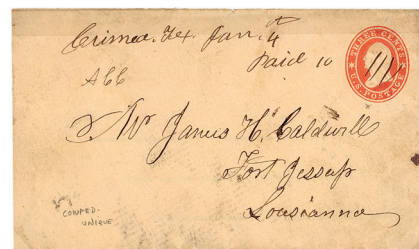 Crimea. Tex. Jan. 4
Paid 10
THREE CENTS
U.S. POSTAGE
Mr James H. Caldwell
Fort Jessup
Lousianna
CONFED-
UNIQUE